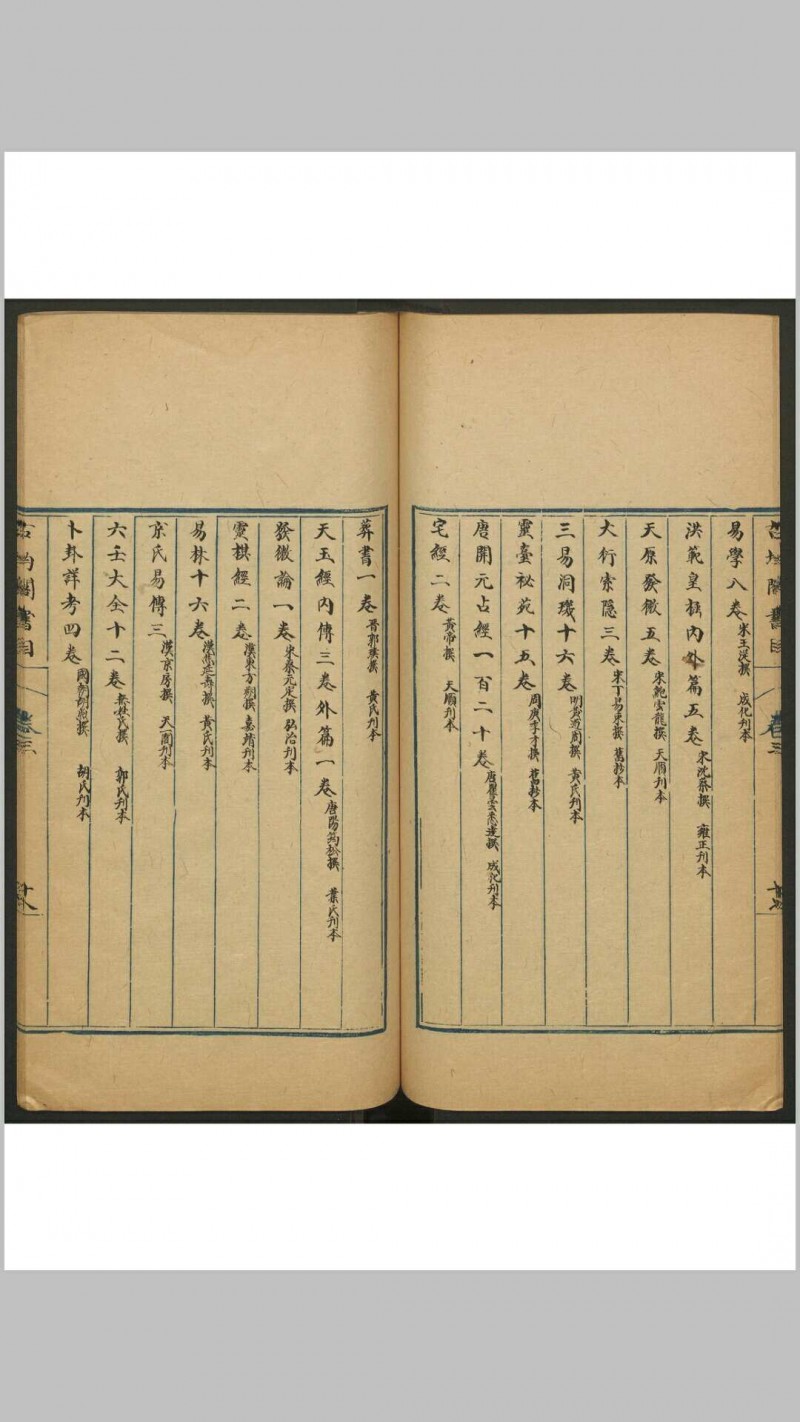 易學八卷 宋王湜撰 成化刊本
洪範皇極內外篇五卷 宋沈蔡撰 雍正刊本
天原發微五卷 宋鮑雲龍撰 天順刊本
大衍索隱三卷 宋丁易東撰 舊抄本
三易洞璣十六卷 明黃道周撰 黃氏刊本
靈臺祕苑十五卷 周庾季才撰 舊抄本
唐開元占經一百二十卷 唐瞿曇悉達撰 成化刊本
宅經二卷 黃帝撰 天順刊本
葬書一卷 晋郭璞撰 黃氏刊本
天玉經內傳三卷外篇一卷 唐陽筠松撰 葉氏刊本
發微論一卷 宋蔡元定撰 弘治刊本
靈棋經二卷 漢東方朔撰 嘉靖刊本
易林十六卷 漢焦延壽撰 黃氏刊本
京氏易傳三 漢京房撰 天一閣刊本
六壬大全十二卷 無姓氏撰 郭氏刊本
卜卦詳考四卷 撰 胡氏刊本
書目